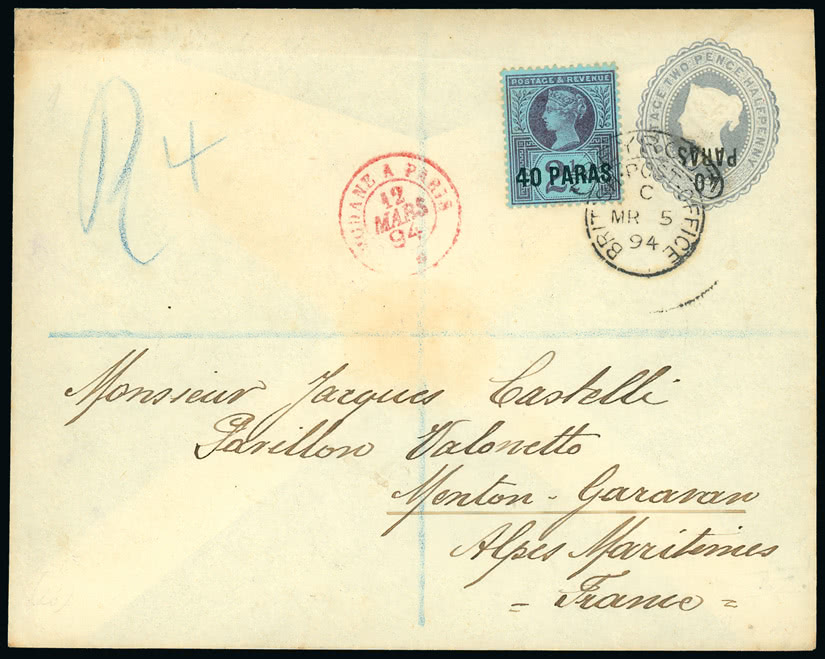 R 4
MODANE A PARIS
12
MARS
94
POSTAGE & REVENUE
2½
40 PARAS
POSTAGE TWO PENCE HALFPENNY
40
PARAS
BRITISH POST OFFICE
C
MR 5
94
Monsieur Jacques Castelli
Pavillon Valonetto
Menton-Garavan
Alpes Maritimes
= France =